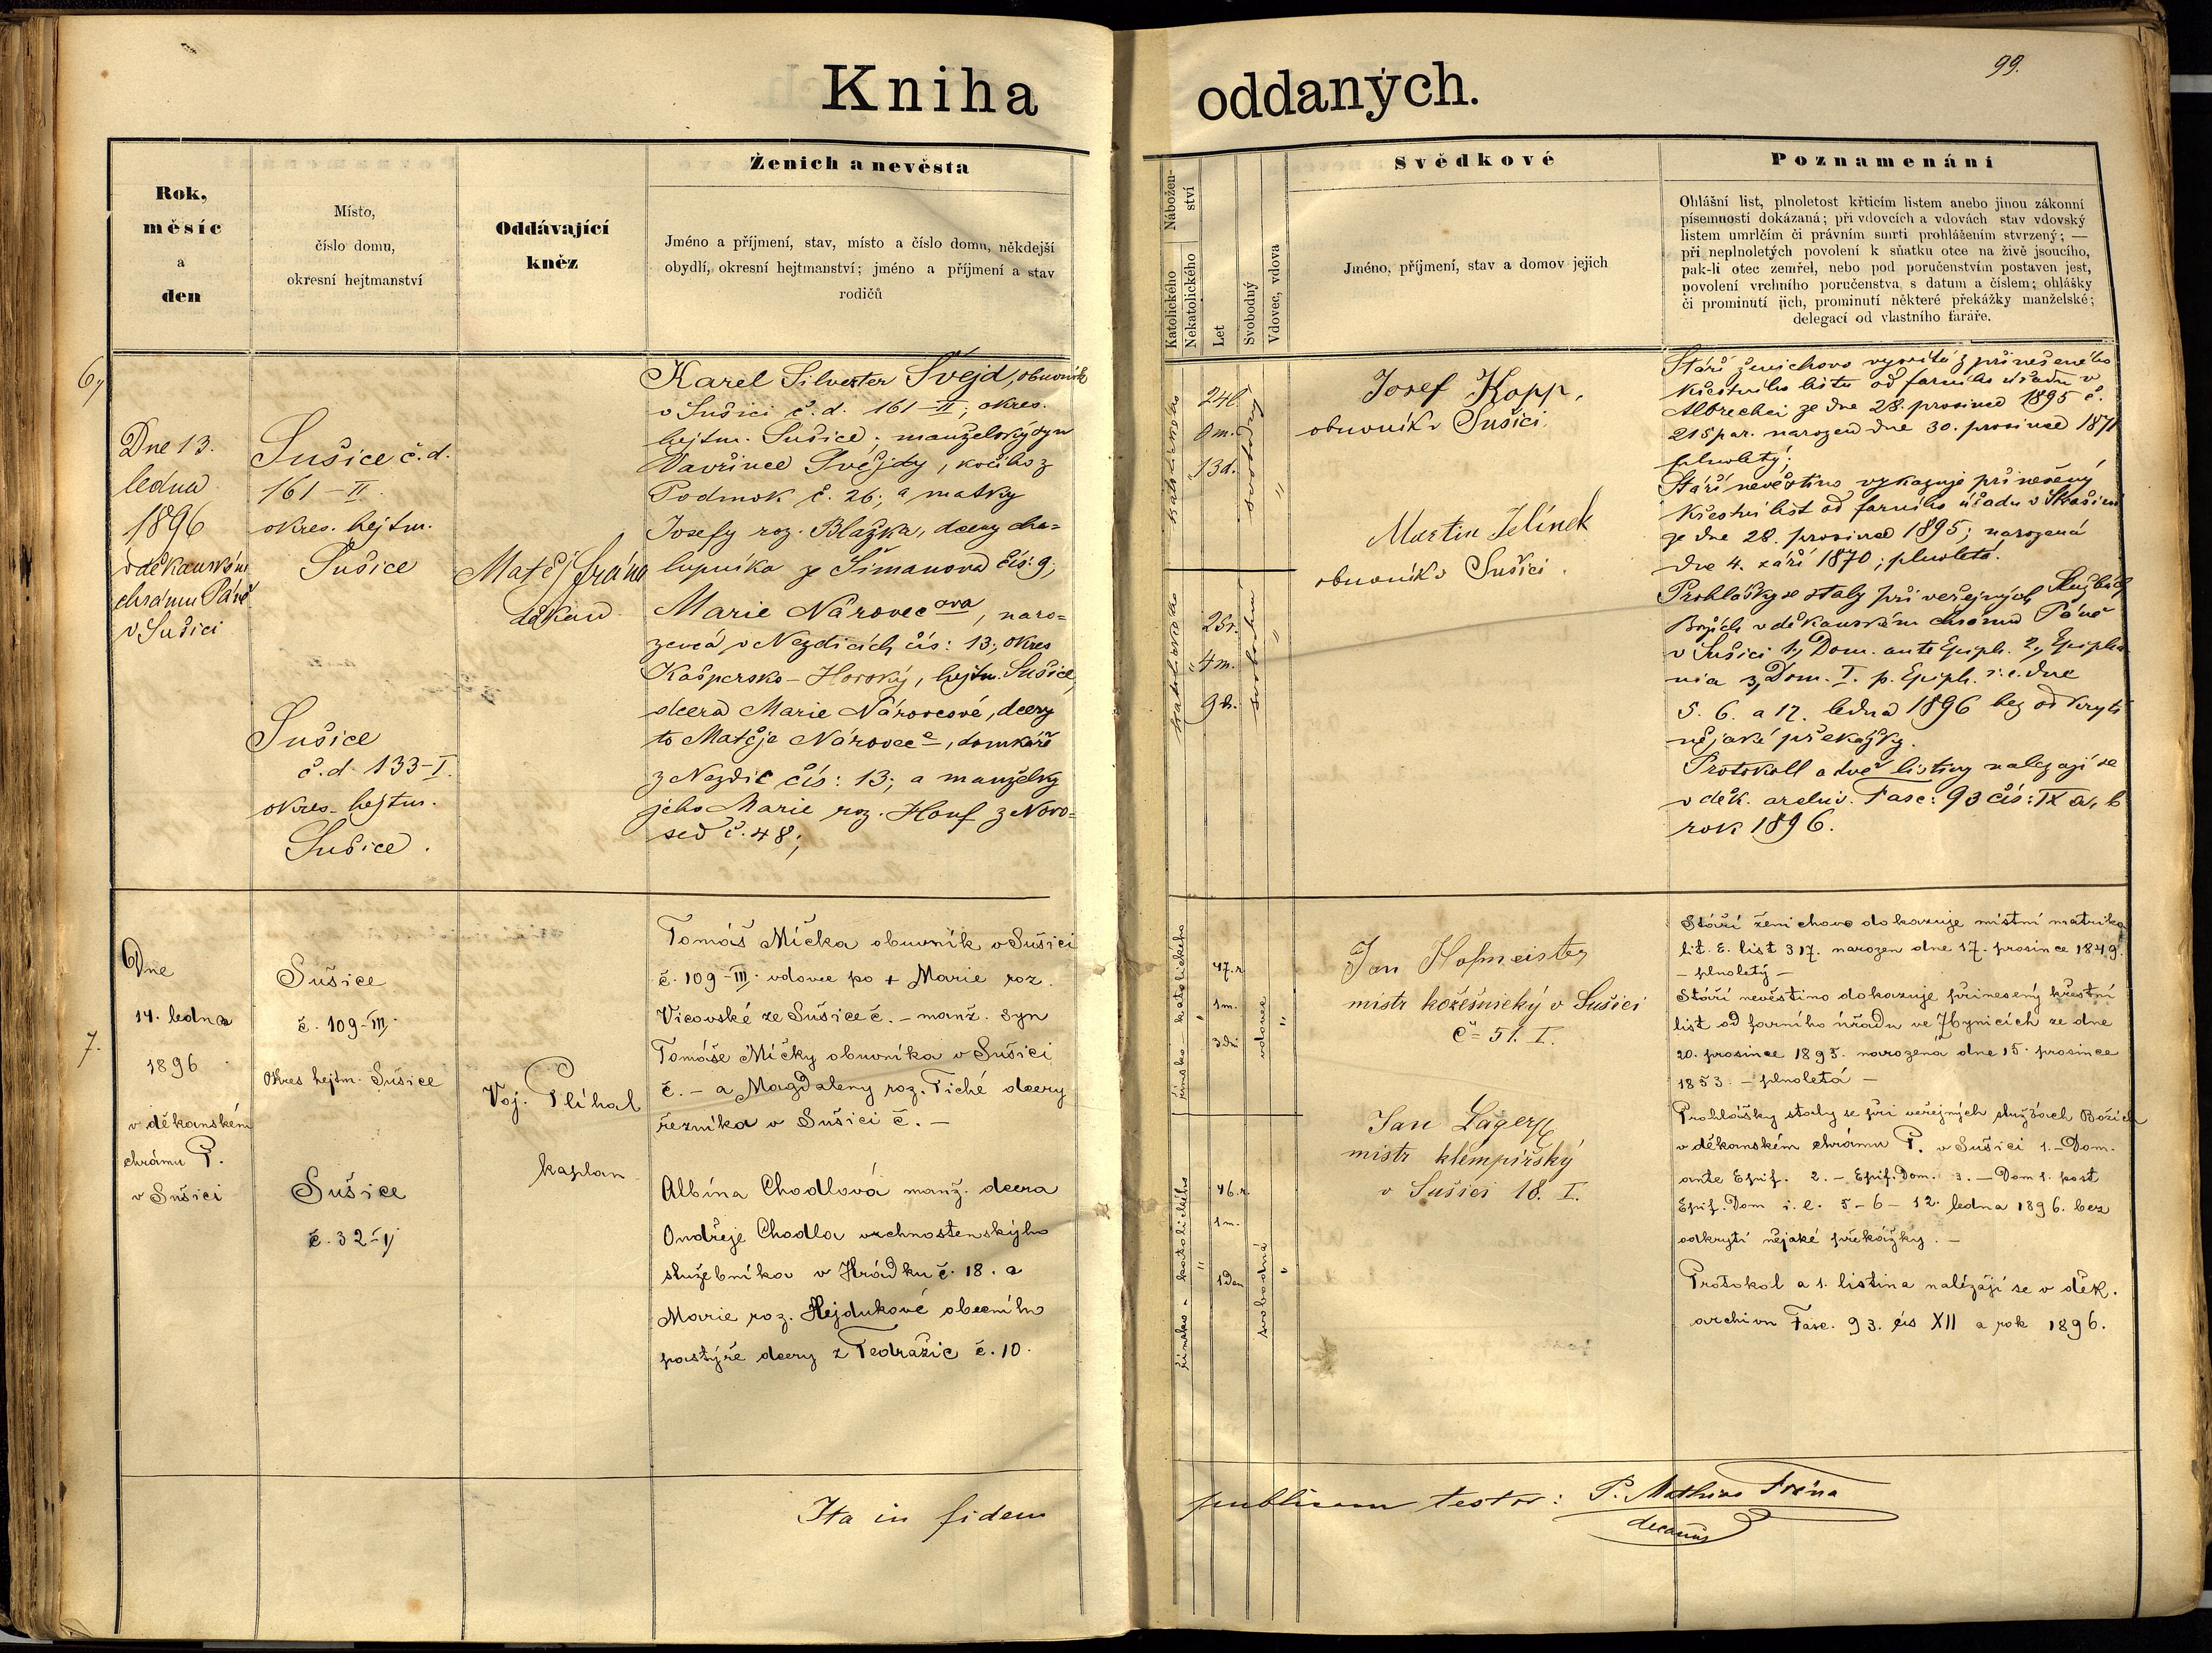 99.
Kniha oddaných.
Rok,
měsíc
a
den
Místo,
číslo domu,
okresní hejtmanství
Oddávající
kněz
Ženich a nevěsta
Jméno a příjmení, stav, místo a číslo domu, někdejší
obydlí, okresní hejtmanství; jméno a příjmení a stav
rodičů
Nábožen-
ství
Katolického
Nekatolického
Let
Svobodný
Vdovec, vdova
Svědkové
Jméno, příjmení, stav a domov jejich
Poznamenání
Ohlášní list, plnoletost křticím listem anebo jinou zákonní
písemností dokázaná; při vdovcích a vdovách stav vdovský
listem umrlčím či právním smrti prohlášením stvrzený; —
při neplnoletých povolení k sňatku otce na živě jsoucího,
pak-li otec zemřel, nebo pod poručenstvím postaven jest,
povolení vrchního poručenstva s datum a číslem; ohlášky
či prominutí jich, prominutí některé překážky manželské;
delegací od vlastního faráře.
6,
Dne 13.
ledna
1896
v děkanském
chrámu Páně
v Sušici
Sušice č. d.
161-II.
okres. hejtm.
Sušice
Sušice
č. d. 133-I.
okres. hejtm.
Sušice.
Matěj Frána
děkan
Karel Silvester Švejd, obuvník
v Sušici č. d. 161-II; okres.
hejtm. Sušice; manželský syn
Vavřince Švejdy, kočího z
Podmok č. 26; a matky
Josefy roz. Blažka, dcery cha-
lupníka ze Šimanova čís: 9;
Marie Nárovecova, naro-
zená v Nezdicích čís: 13; okres
Kašpersko-Horský, hejtm. Sušice,
dcera Marie Nárovcové, dcery
to Matěje Nárovece, domkáře
z Nezdic čís: 13; a manželky
jeho Marie roz. Houf z Novo-
sed č. 48;
katolického
24 l.
0 m.
13 d.
svobodný
"
katolického
25 r.
4 m.
9 d.
svobodná
"
Josef Kopp,
obuvník v Sušici.
Martin Jelínek
obuvník v Sušici.
Stáří ženichovo vysvítá z přineseného
křestního listu od farního úřadu v
Albrechci ze dne 28. prosince 1895 č.
215 par. narozen dne 30. prosince 1871
plnoletý;
Stáří nevěstino vykazuje přinesený
křestní list od farního úřadu v Strašíně
ze dne 28. prosince 1895; narozená
dne 4. září 1870; plnoletá.
Prohlášky se staly při veřejných službách
Božích v děkanském chrámu Páně
v Sušici 1, Dom. ante Epiph. 2, Epipha-
nia 3, Dom. I. p. Epiph. i. e. dne
5. 6. a 12. ledna 1896 bez odkrytí
nějaké překážky.
Protokoll a dvě listiny nalezají se
v děk. archiv. Fasc: 93 čís: IX a, b
rok 1896.
7.
Dne
14. ledna
1896
v děkanském
chrámu P.
v Sušici
Sušice
č. 109-III.
Okres hejtm. Sušice
Sušice
č. 32-I
Voj. Plíhal
kaplan
Tomáš Míčka obuvník v Sušici
č. 109-III. vdovec po + Marie roz.
Vicovské ze Sušice č. - manž. syn
Tomáše Míčky obuvníka v Sušici
č. - a Magdaleny roz. Tiché dcery
řezníka v Sušici č. -
Albína Chodlová manž. dcera
Ondřeje Chodla vrchnostenskýho
služebníka v Hrádku č. 18. a
Marie roz. Hejdukové obecního
pastýře dcery z Tedražic č. 10.
římsko - katolického
"
47. r.
1 m.
3 dni
vdovec
"
římsko - katolického
"
46. r.
1 m.
1 den
svobodná
"
Jan Hofmeister
mistr kožešnický v Sušici
č= 51. I.
Jan Lager
mistr klempířský
v Sušici 18. I.
Stáří ženichovo dokazuje místní matrika
lit. E. list 317. narozen dne 17. prosince 1849.
- plnoletý -
Stáří nevěstino dokazuje přinesený křestní
list od farního úřadu ve Zbynicích ze dne
20. prosince 1895. narozena dne 15. prosince
1853. - plnoletá -
Prohlášky staly se při veřejných službách Božích
v děkanském chrámu P. v Sušici 1. - Dom.
ante Epif. 2. - Epif. Dom. 3. - Dom 1. post
Epif. Dom i. e. 5 - 6 - 12. ledna 1896. bez
odkrytí nějaké překážky. -
Protokol a 1. listina nalézájí se v děk.
archivu Fasc. 93. čís XII a rok 1896.
Ita in fidem publicam testor: P. Mathias Frána
decanus